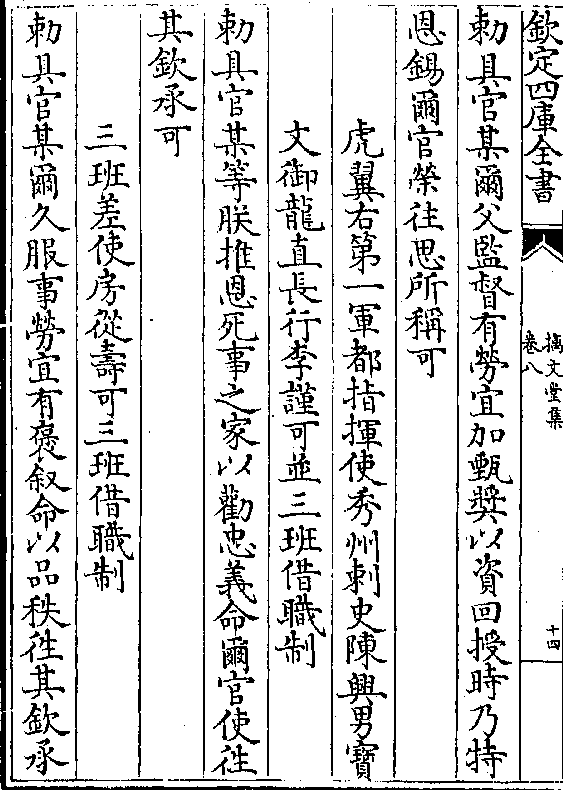 欽定四庫全書
摛文堂集
卷八
十四
勅具官某爾父監督有勞宜加甄奬以資回授時乃特
恩錫爾官榮往思所稱可
虎翼右第一軍都指揮使秀州刺史陳興男寶
文御龍直長行李謹可並三班借職制
勅具官某等朕推恩死事之家以勸忠義命爾官使徃
其欽承可
三班差使房從壽可三班借職制
勅具官某爾久服事勞宜有褒叙命以品秩徃其欽承